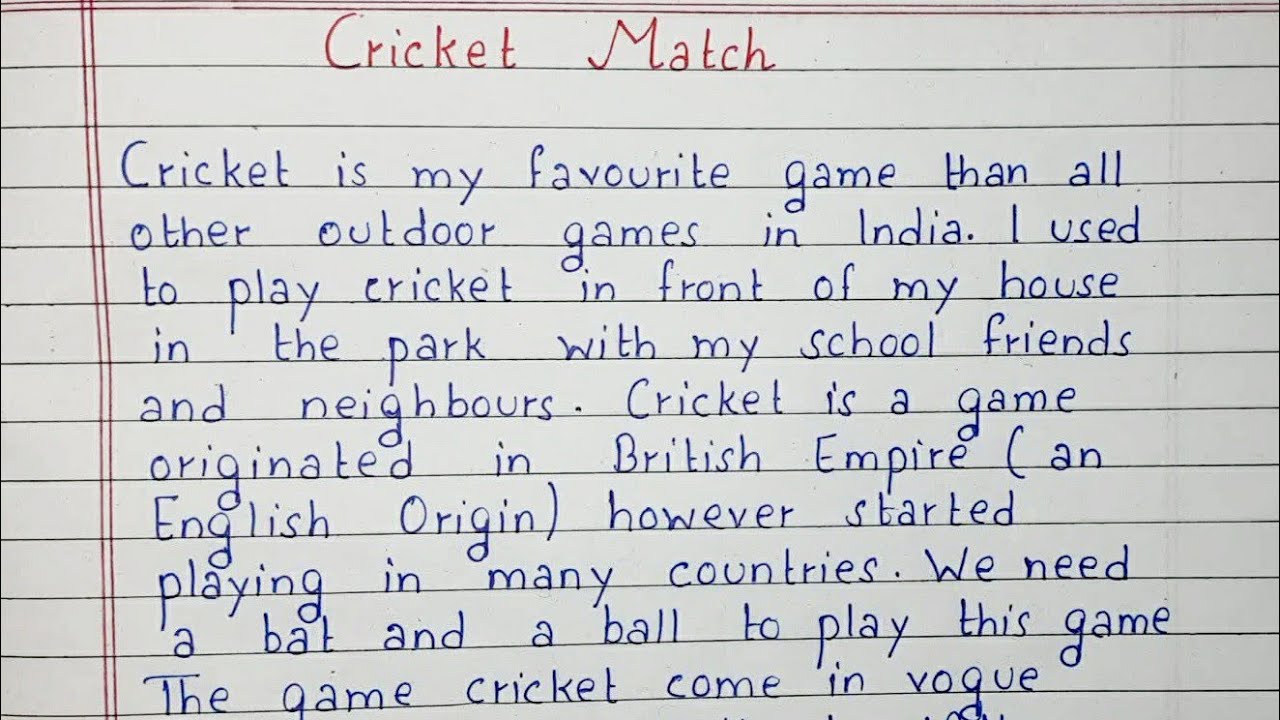 Cricket Match
Cricket is my favourite game than all
other outdoor games in India. I used
to play cricket in front of my house
in the park with my school friends
and neighbours. Cricket is a game
originated in British Empire (an
English Origin) however started
playing in many countries. We need
a bat and a ball to play this game
The game cricket come in vogue